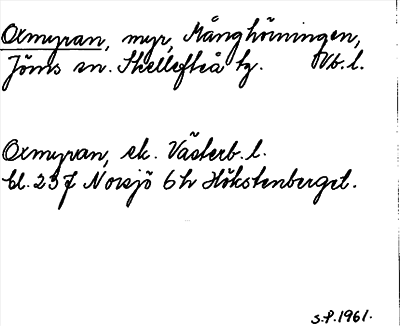 Oxmyran, myr, Månghörningen,
Jörns sn. Skellefteå tg. Vb. l.
Oxmyran, ek. Västerb. l.
bl. 23 f Norsjö 6 h Hökstenberget.
S.P. 1961.